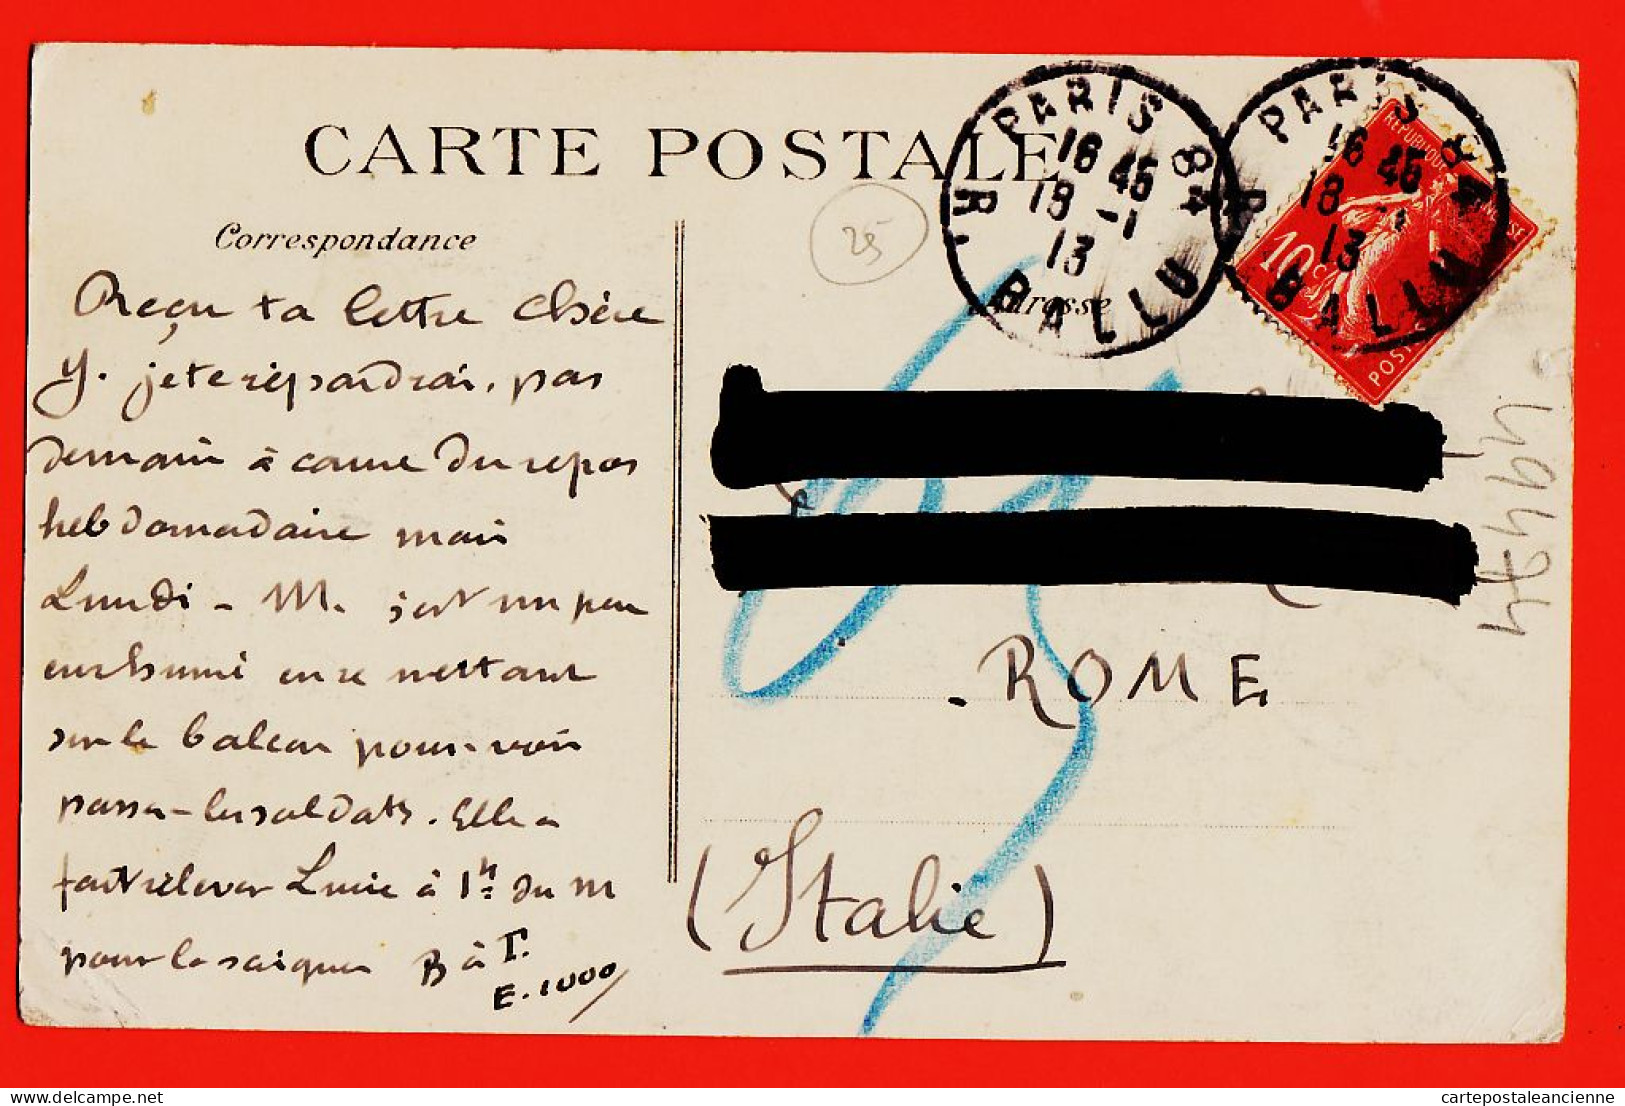 CARTE POSTALE
Correspondance
Reçu ta lettre chère
Y. je te répondrai, pas
demain à cause du repos
hebdomadaire mais
Lundi - M. s'est un peu
enrhumé en se mettant
sur le balcon pour voir
passer les soldats. Elle a
fait relever Lucie à 1h du m
pour la soigner B à T.
E. 1000
25
PARIS 84
16 45
18 -1
13
R. BALLU
PARIS 84
16 45
18 -1
13
R. BALLU
REPUBLIQUE
10c
POSTES
Adresse
- ROME
(Italie)
delcampe.net
cartepostaleancienne